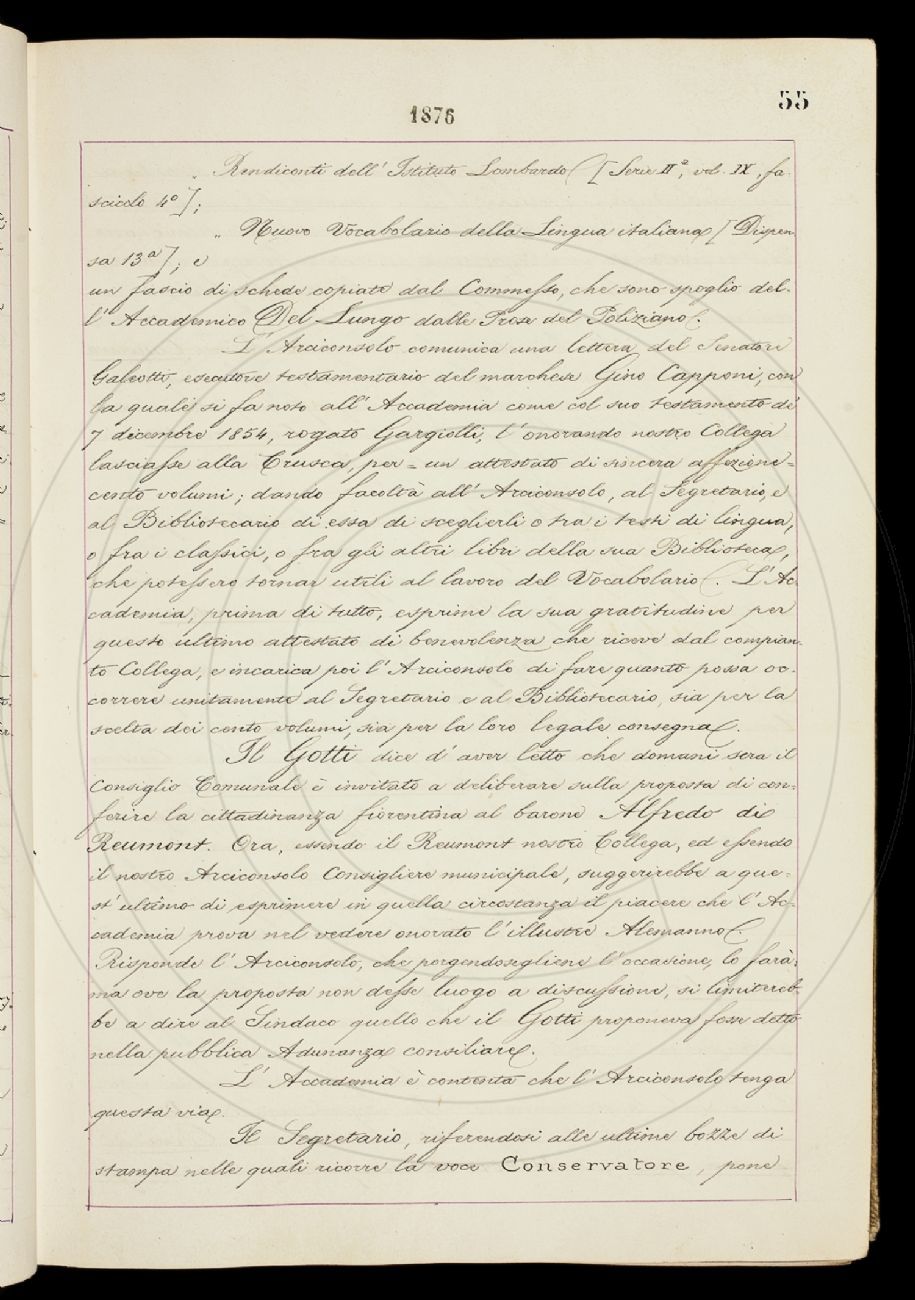 1876
55
„ Rendiconti dell' Istituto Lombardo [Serie IIª, vol. IX, fa-
scicolo 4º];
„ Nuovo Vocabolario della Lingua italiana [Dispen-
sa 13ª]; e
un fascio di schede copiate dal Commesso, che sono spoglio del-
l' Accademico Del Lungo dalle Prose del Poliziano.
L' Arciconsolo comunica una lettera del Senatore
Galeotti, esecutore testamentario del marchese Gino Capponi, con
la quale si fa noto all' Accademia come col suo testamento de'
7 dicembre 1854, rogato Gargiolli, l' onorando nostro Collega
lasciasse alla Crusca, per = un attestato di sincera affezione =
cento volumi; dando facoltà all' Arciconsolo, al Segretario, e
al Bibliotecario di essa di sceglierli o tra i testi di lingua,
o fra i classici, o fra gli altri libri della sua Biblioteca,
che potessero tornar utili al lavoro del Vocabolario. L' Ac-
cademia, prima di tutto, esprime la sua gratitudine per
questo ultimo attestato di benevolenza che riceve dal compian-
to Collega, e incarica poi l' Arciconsolo di fare quanto possa oc-
correre unitamente al Segretario e al Bibliotecario, sia per la
scelta dei cento volumi, sia per la loro legale consegna.
Il Gotti dice d' aver letto che domani sera il
Consiglio Comunale è invitato a deliberare sulla proposta di con-
ferire la cittadinanza fiorentina al barone Alfredo di
Reumont. Ora, essendo il Reumont nostro Collega, ed essendo
il nostro Arciconsolo Consigliere municipale, suggerirebbe a que-
st' ultimo di esprimere in quella circostanza il piacere che l' Ac-
cademia prova nel vedere onorato l' illustre Alemanno.
Risponde l' Arciconsolo, che porgendosegliene l' occasione, lo farà;
ma ove la proposta non desse luogo a discussione, si limitereb-
be a dire al Sindaco quello che il Gotti proponeva fosse detto
nella pubblica Adunanza consiliare.
L' Accademia è contenta che l' Arciconsolo tenga
questa via.
Il Segretario, riferendosi alle ultime bozze di
stampa nelle quali ricorre la voce Conservatore, pone